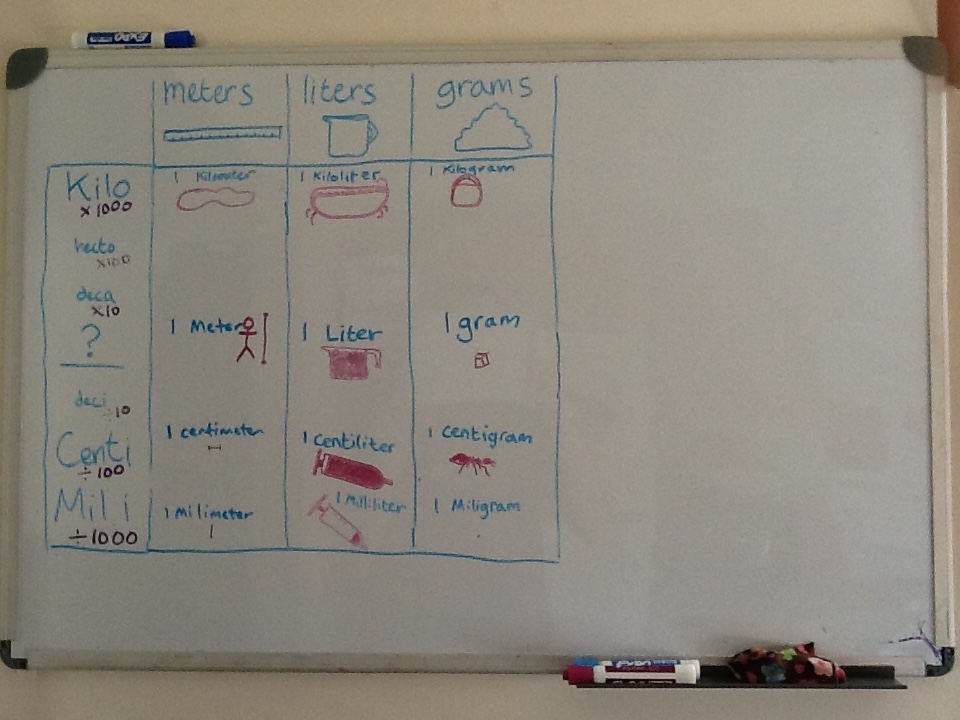 meters liters grams
Kilo 1 Kilometer 1 Kiloliter 1 Kilogram
x1000
hecto
x100
deca
x10
? 1 Meter 1 Liter 1 gram
deci
÷10
Centi 1 centimeter 1 Centiliter 1 Centigram
÷100
Mili 1 Milimeter 1 Milliliter 1 Miligram
÷1000
EXPO